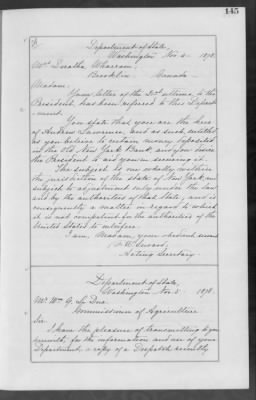 145
Department of State,
Washington Nov. 5 1878.
Madam:
Your letter of the 20th ultimo, to the
President, has been referred to this Depart-
ment.
You state that you are the heir
of Andrew Lawrence, and as such entitled
as you believe to certain money deposited
in the old New York Bank, and you desire
the President to aid you in securing it.
The subject is one wholly within
the jurisdiction of the State of New York, and
subject to adjustment only under the law
and by the authorities of that State, and is
consequently a matter in regard to which
it is not competent for the authorities of the
United States to interfere.
I am, Madam, your obedient servant
F. W. Seward,
Acting Secretary.
Department of State,
Washington Nov. 5 1878.
Mr. Wm. G. Le Duc
Commissioner of Agriculture
Sir:
I have the pleasure of transmitting to you
herewith, for the information and use of your
Department, a copy of a Despatch recently